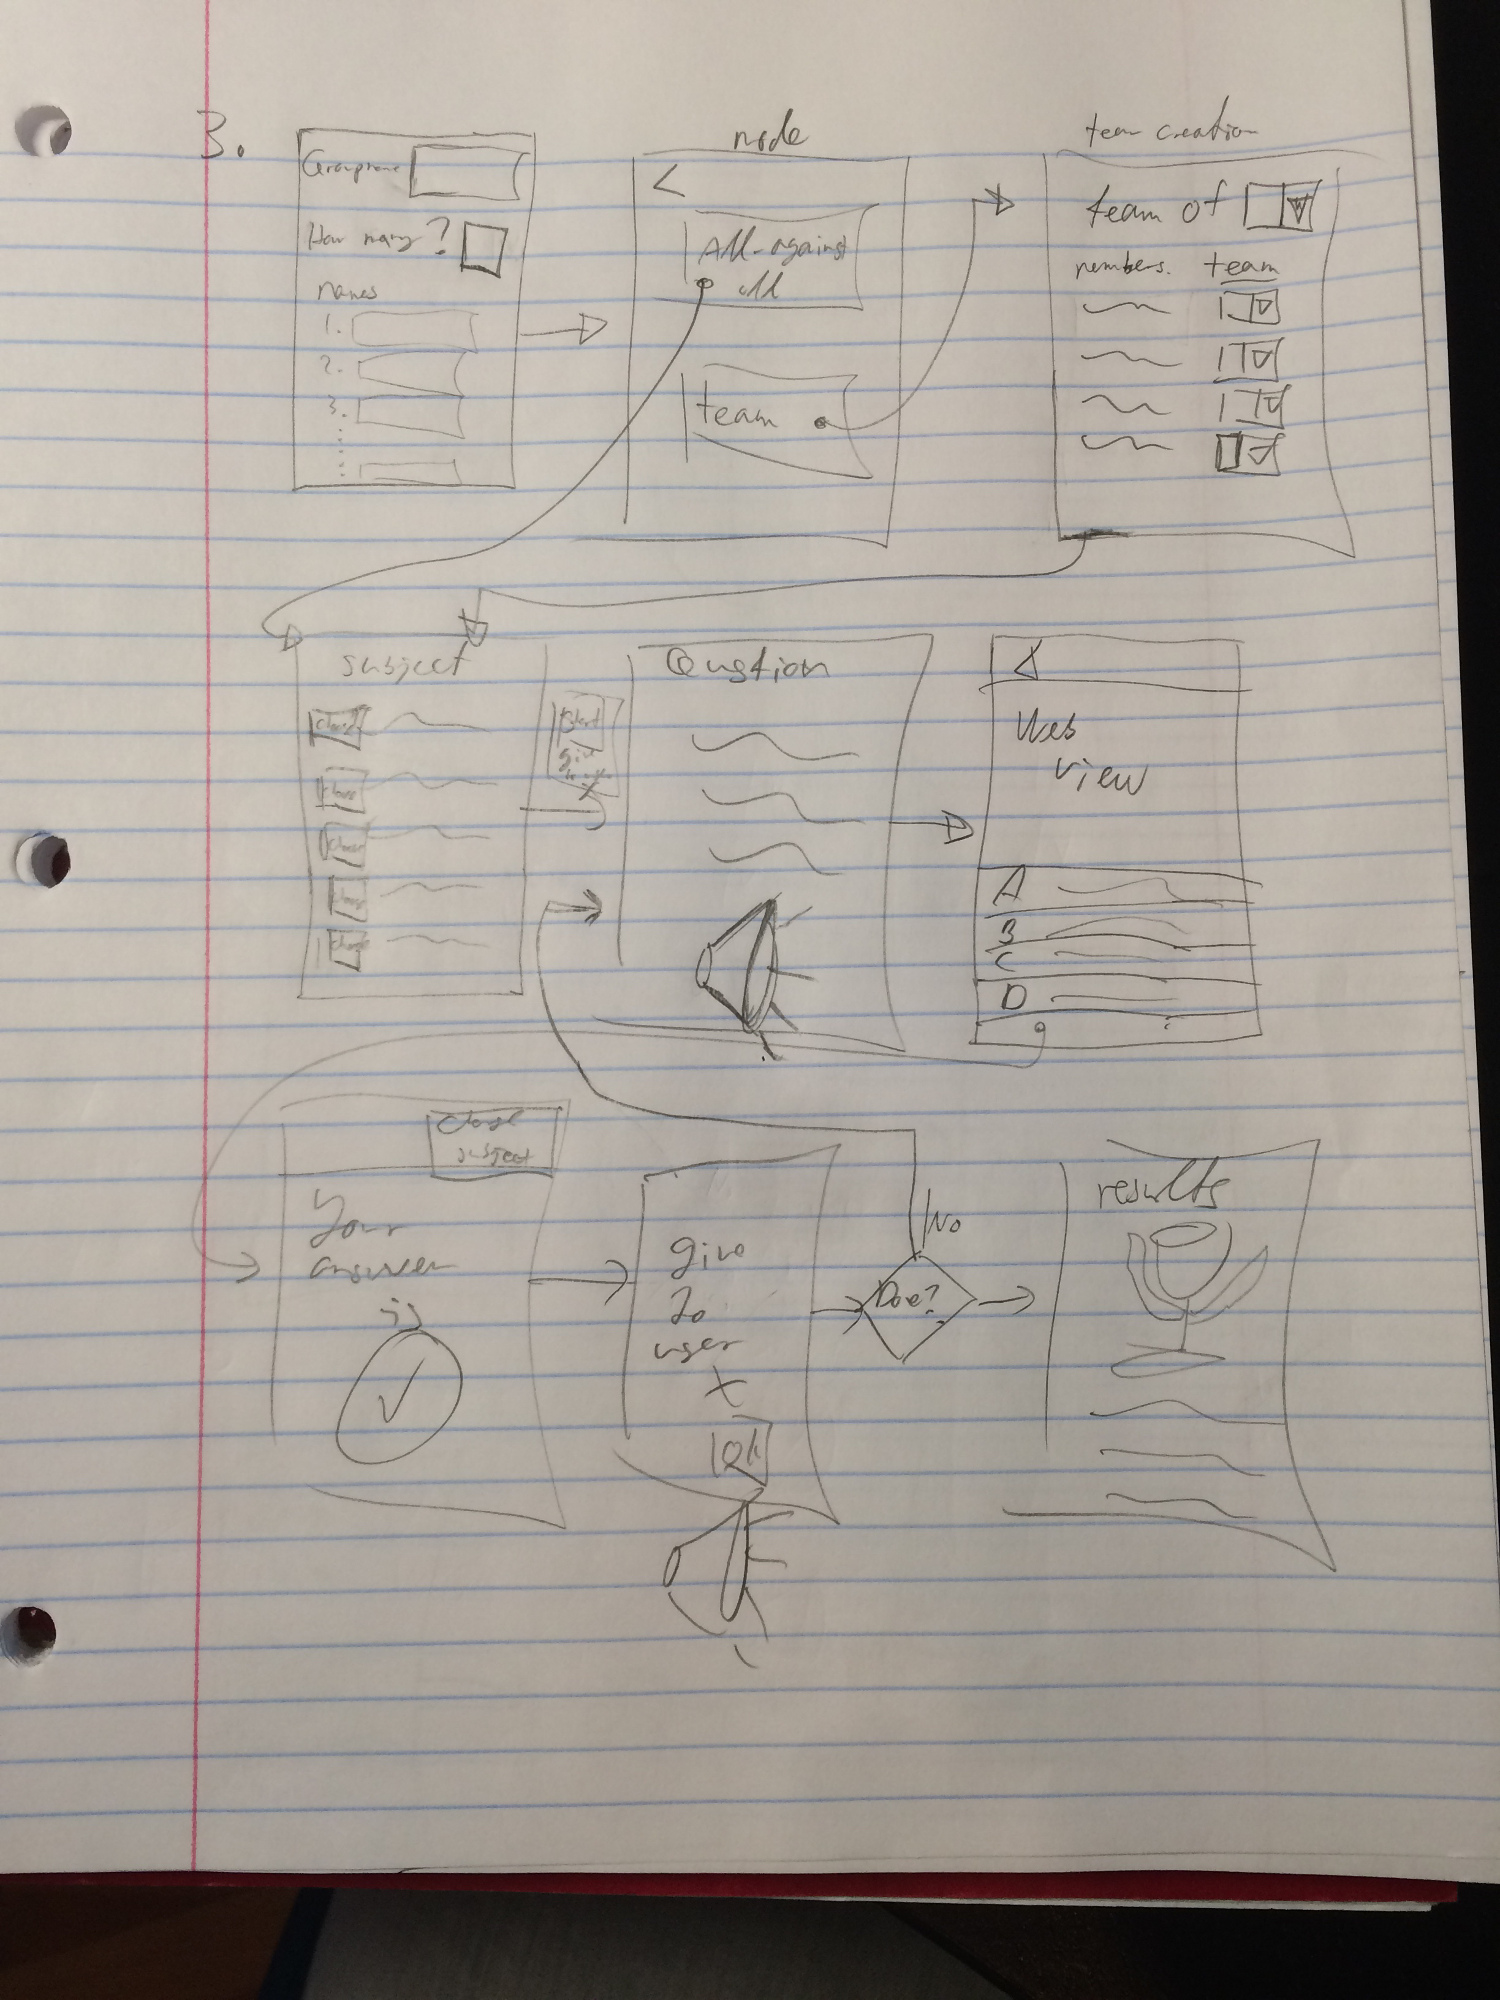 3.
Groupname
How many?
names
1.
2.
3.
mode
<
All-against
all
team
team creation
team of
members. team
subject
chose
chose
chose
chose
chose
Start
give
Qustion
Web
view
A
B
C
D
chose
subject
Your
answer
is
give
to
user
X
Ok
No
Doe?
results